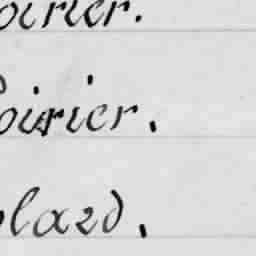 oirier.
oirier.
lard.